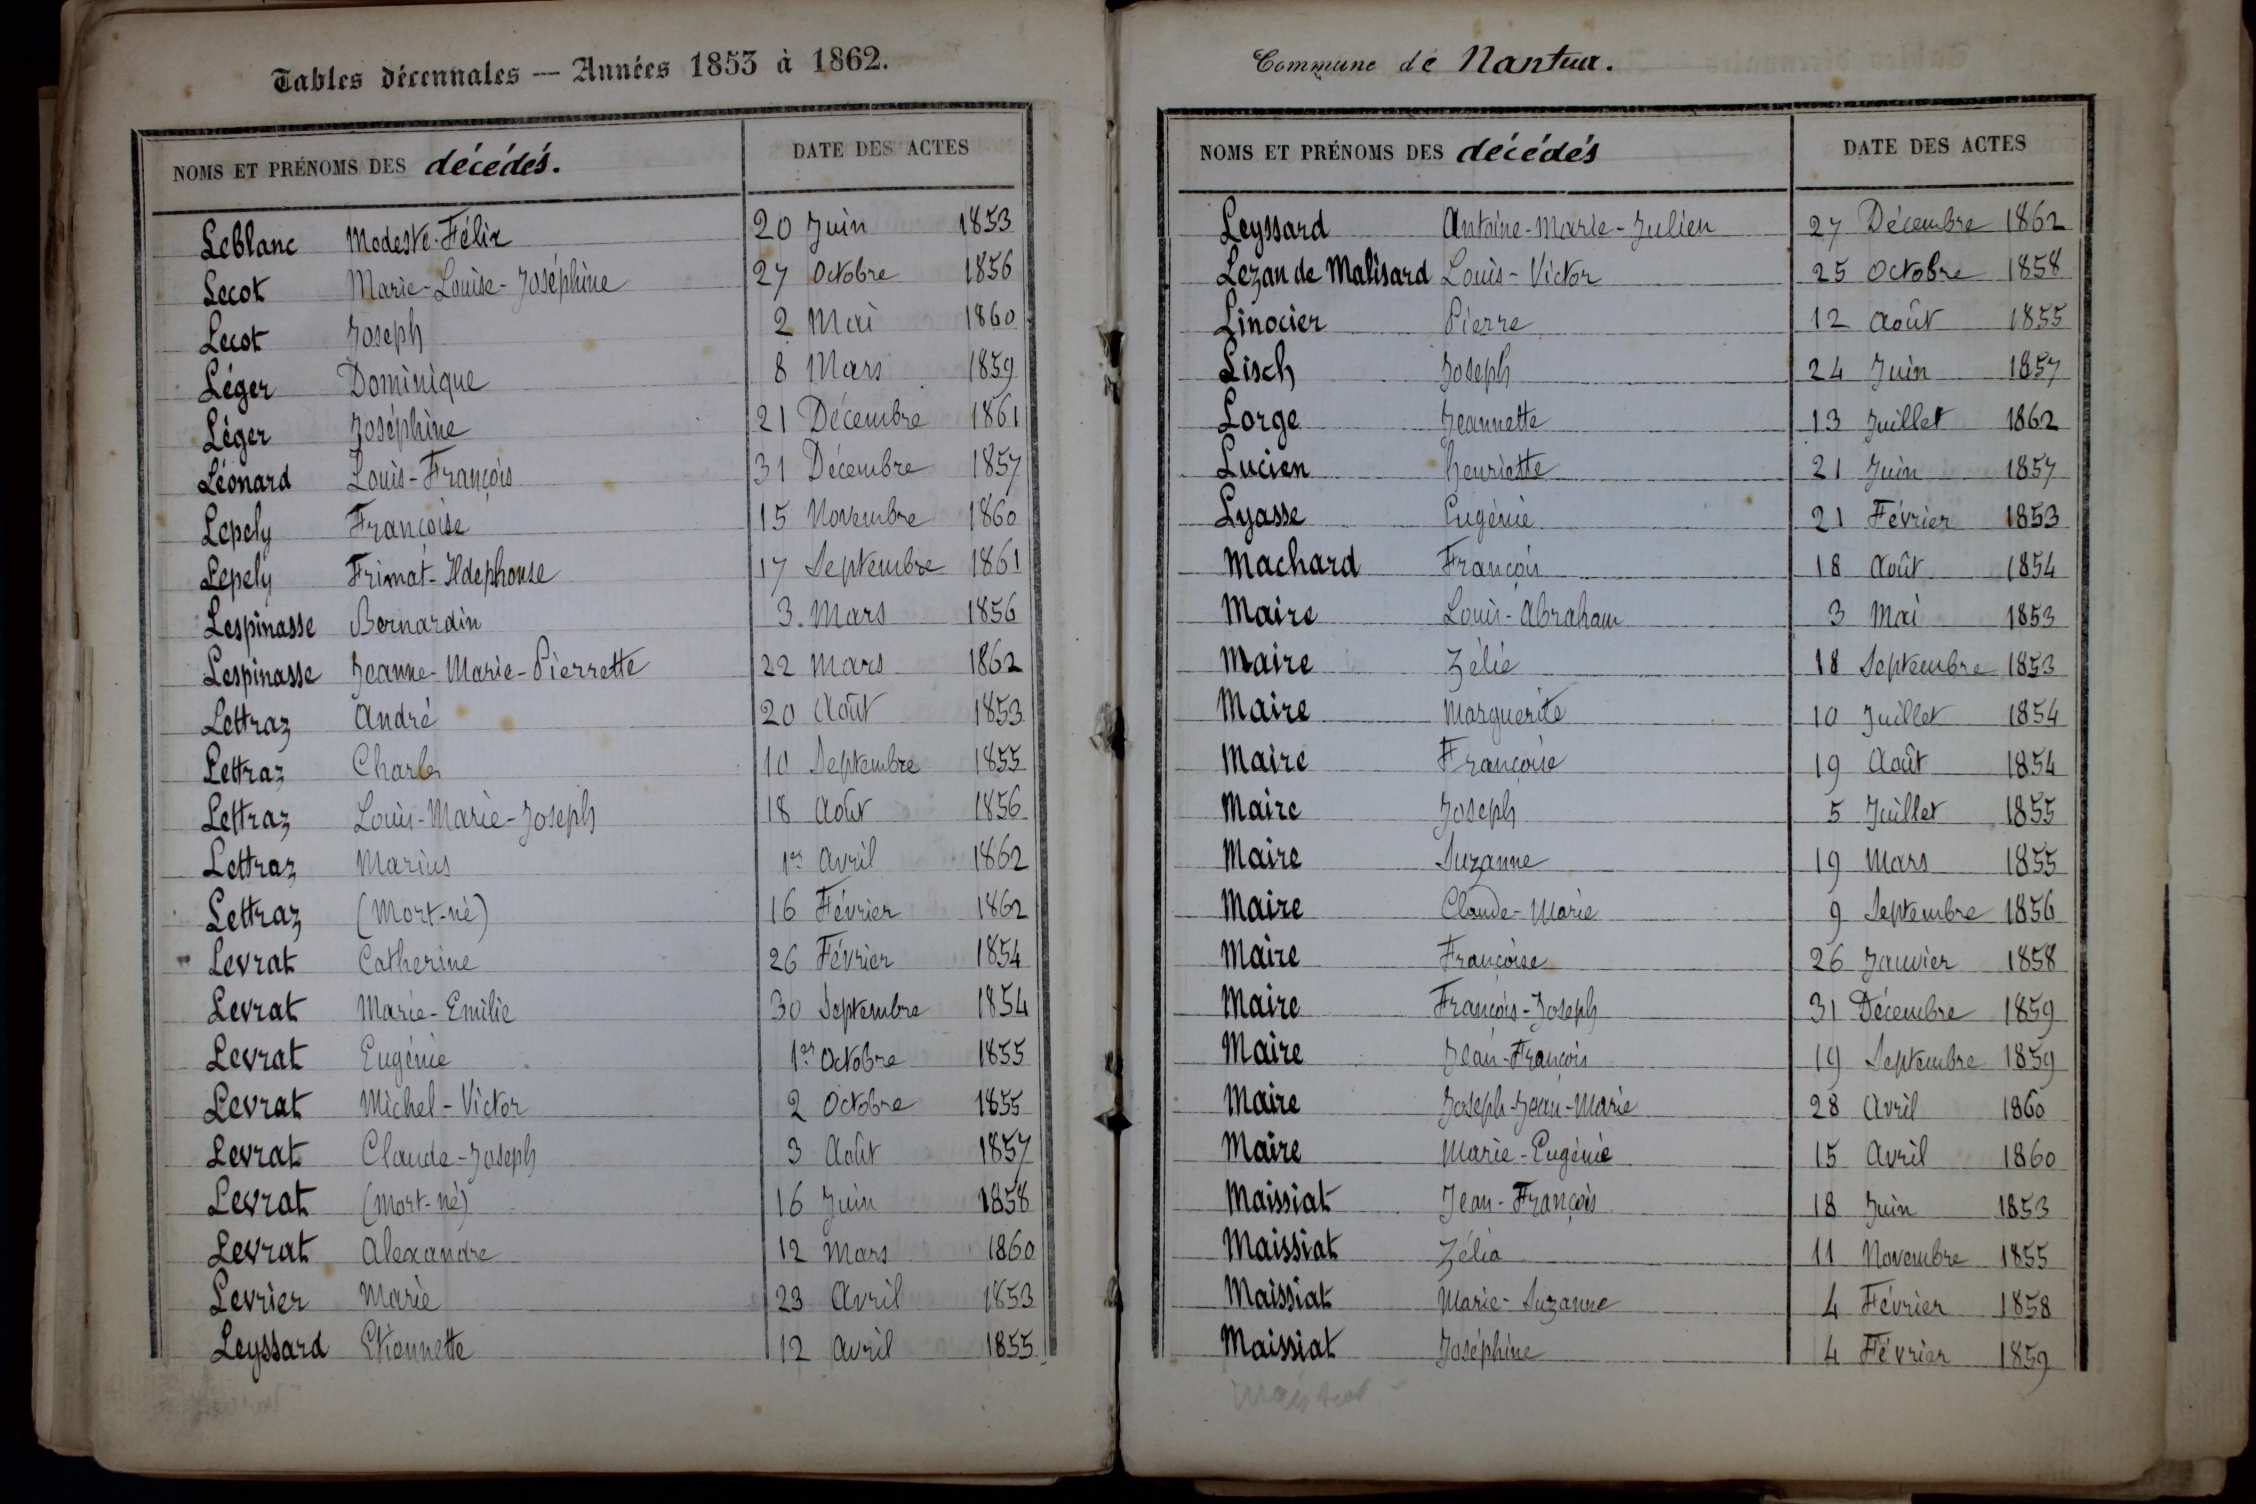 Tables décennales — Années 1853 à 1862.
NOMS ET PRÉNOMS DES décédés. DATE DES ACTES
Leblanc Modeste-Félix 20 Juin 1853
Lecot Marie-Louise-Joséphine 27 Octobre 1856
Lecot Joseph 2 Mai 1860
Léger Dominique 8 Mars 1859
Léger Joséphine 21 Décembre 1861
Léonard Louis-François 31 Décembre 1857
Lepely Françoise 15 Novembre 1860
Lepely Frimat-Ildephonse 17 Septembre 1861
Lespinasse Bernardin 3 Mars 1856
Lespinasse Jeanne-Marie-Pierrette 22 Mars 1862
Lettraz André 20 Août 1853
Lettraz Charles 10 Septembre 1855
Lettraz Louis-Marie-Joseph 18 Août 1856
Lettraz Marius 1er Avril 1862
Lettraz (Mort-né) 16 Février 1862
Levrat Catherine 26 Février 1854
Levrat Marie-Emilie 30 Septembre 1854
Levrat Eugénie 1er Octobre 1855
Levrat Michel-Victor 2 Octobre 1855
Levrat Claude-Joseph 3 Août 1857
Levrat (Mort-né) 16 Juin 1858
Levrat Alexandre 12 Mars 1860
Levrier Marie 23 Avril 1853
Leyssard Etiennette 12 Avril 1855
Commune de Nantua.
NOMS ET PRÉNOMS DES décédés DATE DES ACTES
Leyssard Antoine-Marie-Julien 27 Décembre 1862
Lezan de Malisard Louis-Victor 25 Octobre 1858
Linocier Pierre 12 Août 1855
Lisch Joseph 24 Juin 1857
Lorge Jeannette 13 Juillet 1862
Lucien henriette 21 Juin 1857
Lyasse Eugénie 21 Février 1853
Machard François 18 Août 1854
Maire Louis-Abraham 3 Mai 1853
Maire Zélie 18 Septembre 1853
Maire Marguerite 10 Juillet 1854
Maire Françoise 19 Août 1854
Maire Joseph 5 Juillet 1855
Maire Suzanne 19 Mars 1855
Maire Claude-Marie 9 Septembre 1856
Maire Françoise 26 Janvier 1858
Maire François-Joseph 31 Décembre 1859
Maire Jean-François 19 Septembre 1859
Maire Joseph-Jean-Marie 28 Avril 1860
Maire Marie-Eugénie 15 Avril 1860
Maissiat Jean-François 18 Juin 1853
Maissiat Zélia 11 Novembre 1855
Maissiat Marie-Suzanne 4 Février 1858
Maissiat Joséphine 4 Février 1859